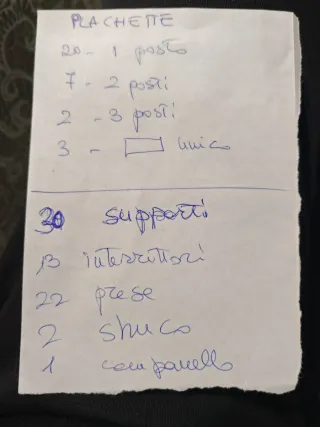 PLACHETTE
20 - 1 posto
7 - 2 posti
2 - 3 posti
3 - unico
30 supporti
13 interruttori
22 prese
2 shuco
1 campanello